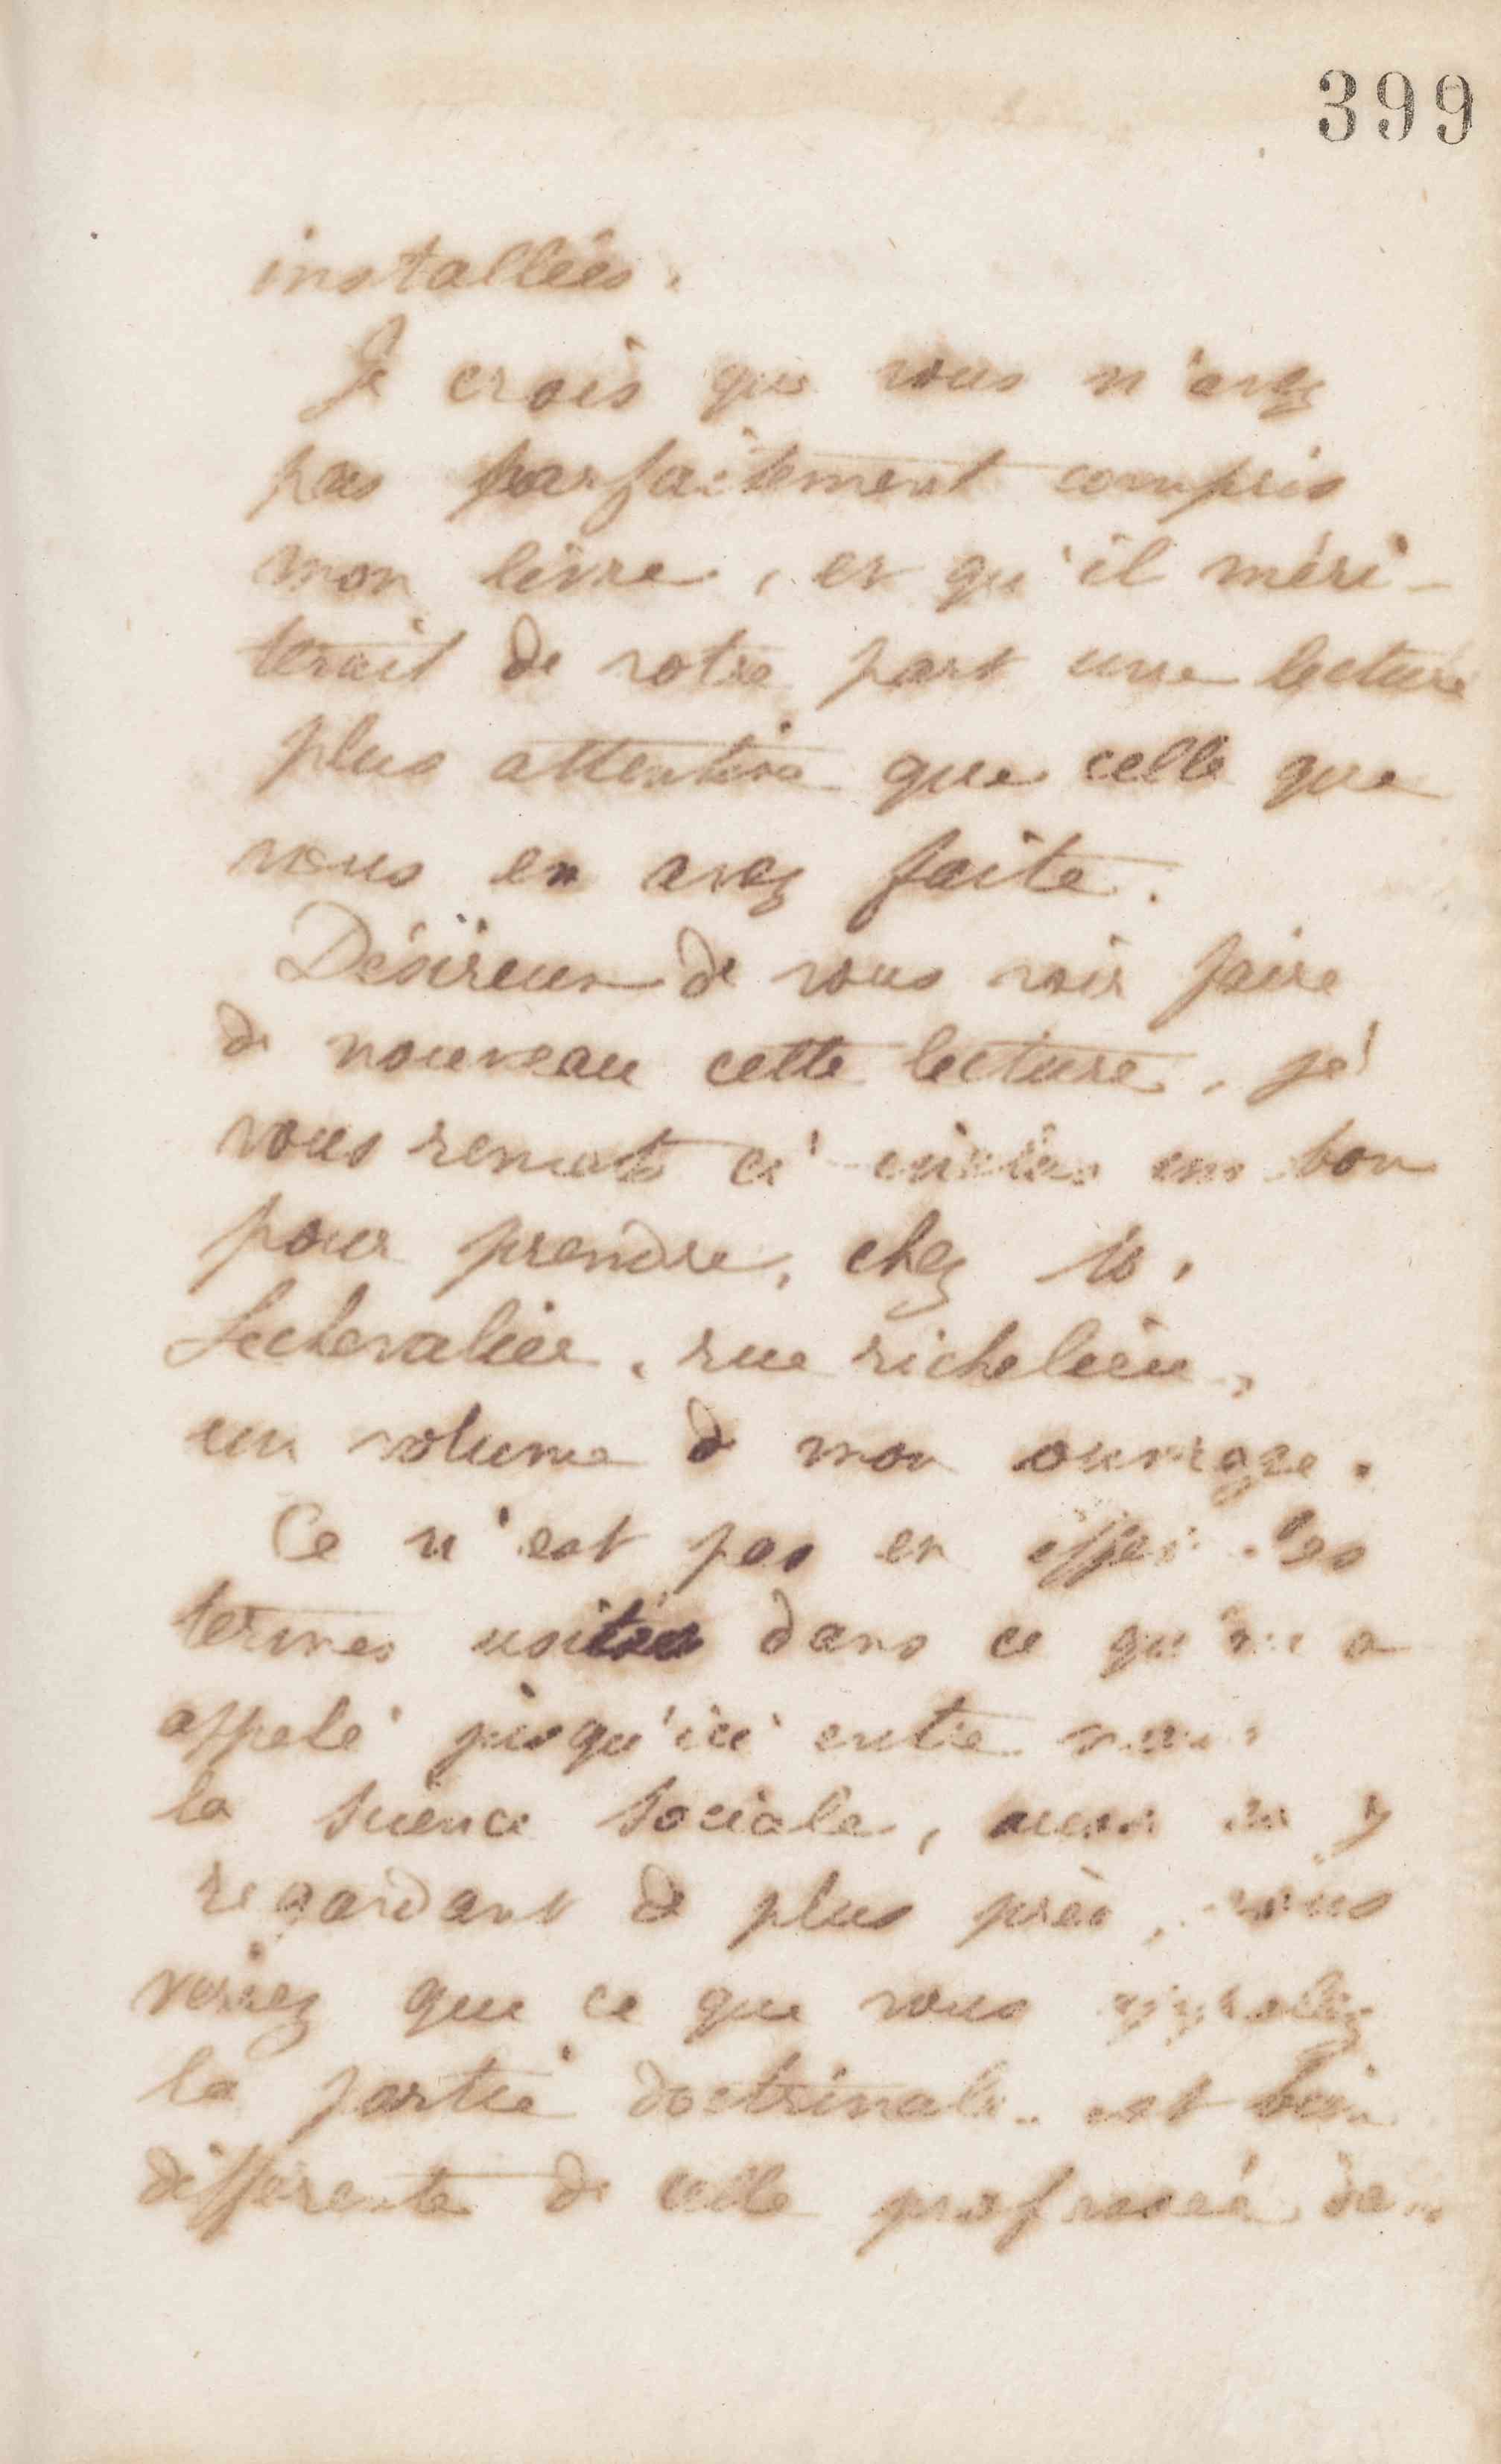 399
installées.
Je crois que vous n'avez
pas parfaitement compris
mon livre, et qu'il méri-
terait de votre part une lecture
plus attentive que celle que
vous en avez faite.
Désireux de vous voir faire
de nouveau cette lecture, je
vous remets ci-inclus un bon
pour prendre, chez M.
Lechevalier, rue richelieu,
un volume de mon ouvrage.
Ce n'est pas en effet les
termes usités dans ce qu'on a
appelé jusqu'ici entre nous
la science sociale, mais en y
regardant de plus près, vous
verrez que ce que vous appelez
la partie doctrinale est bien
différente de celle professée dans